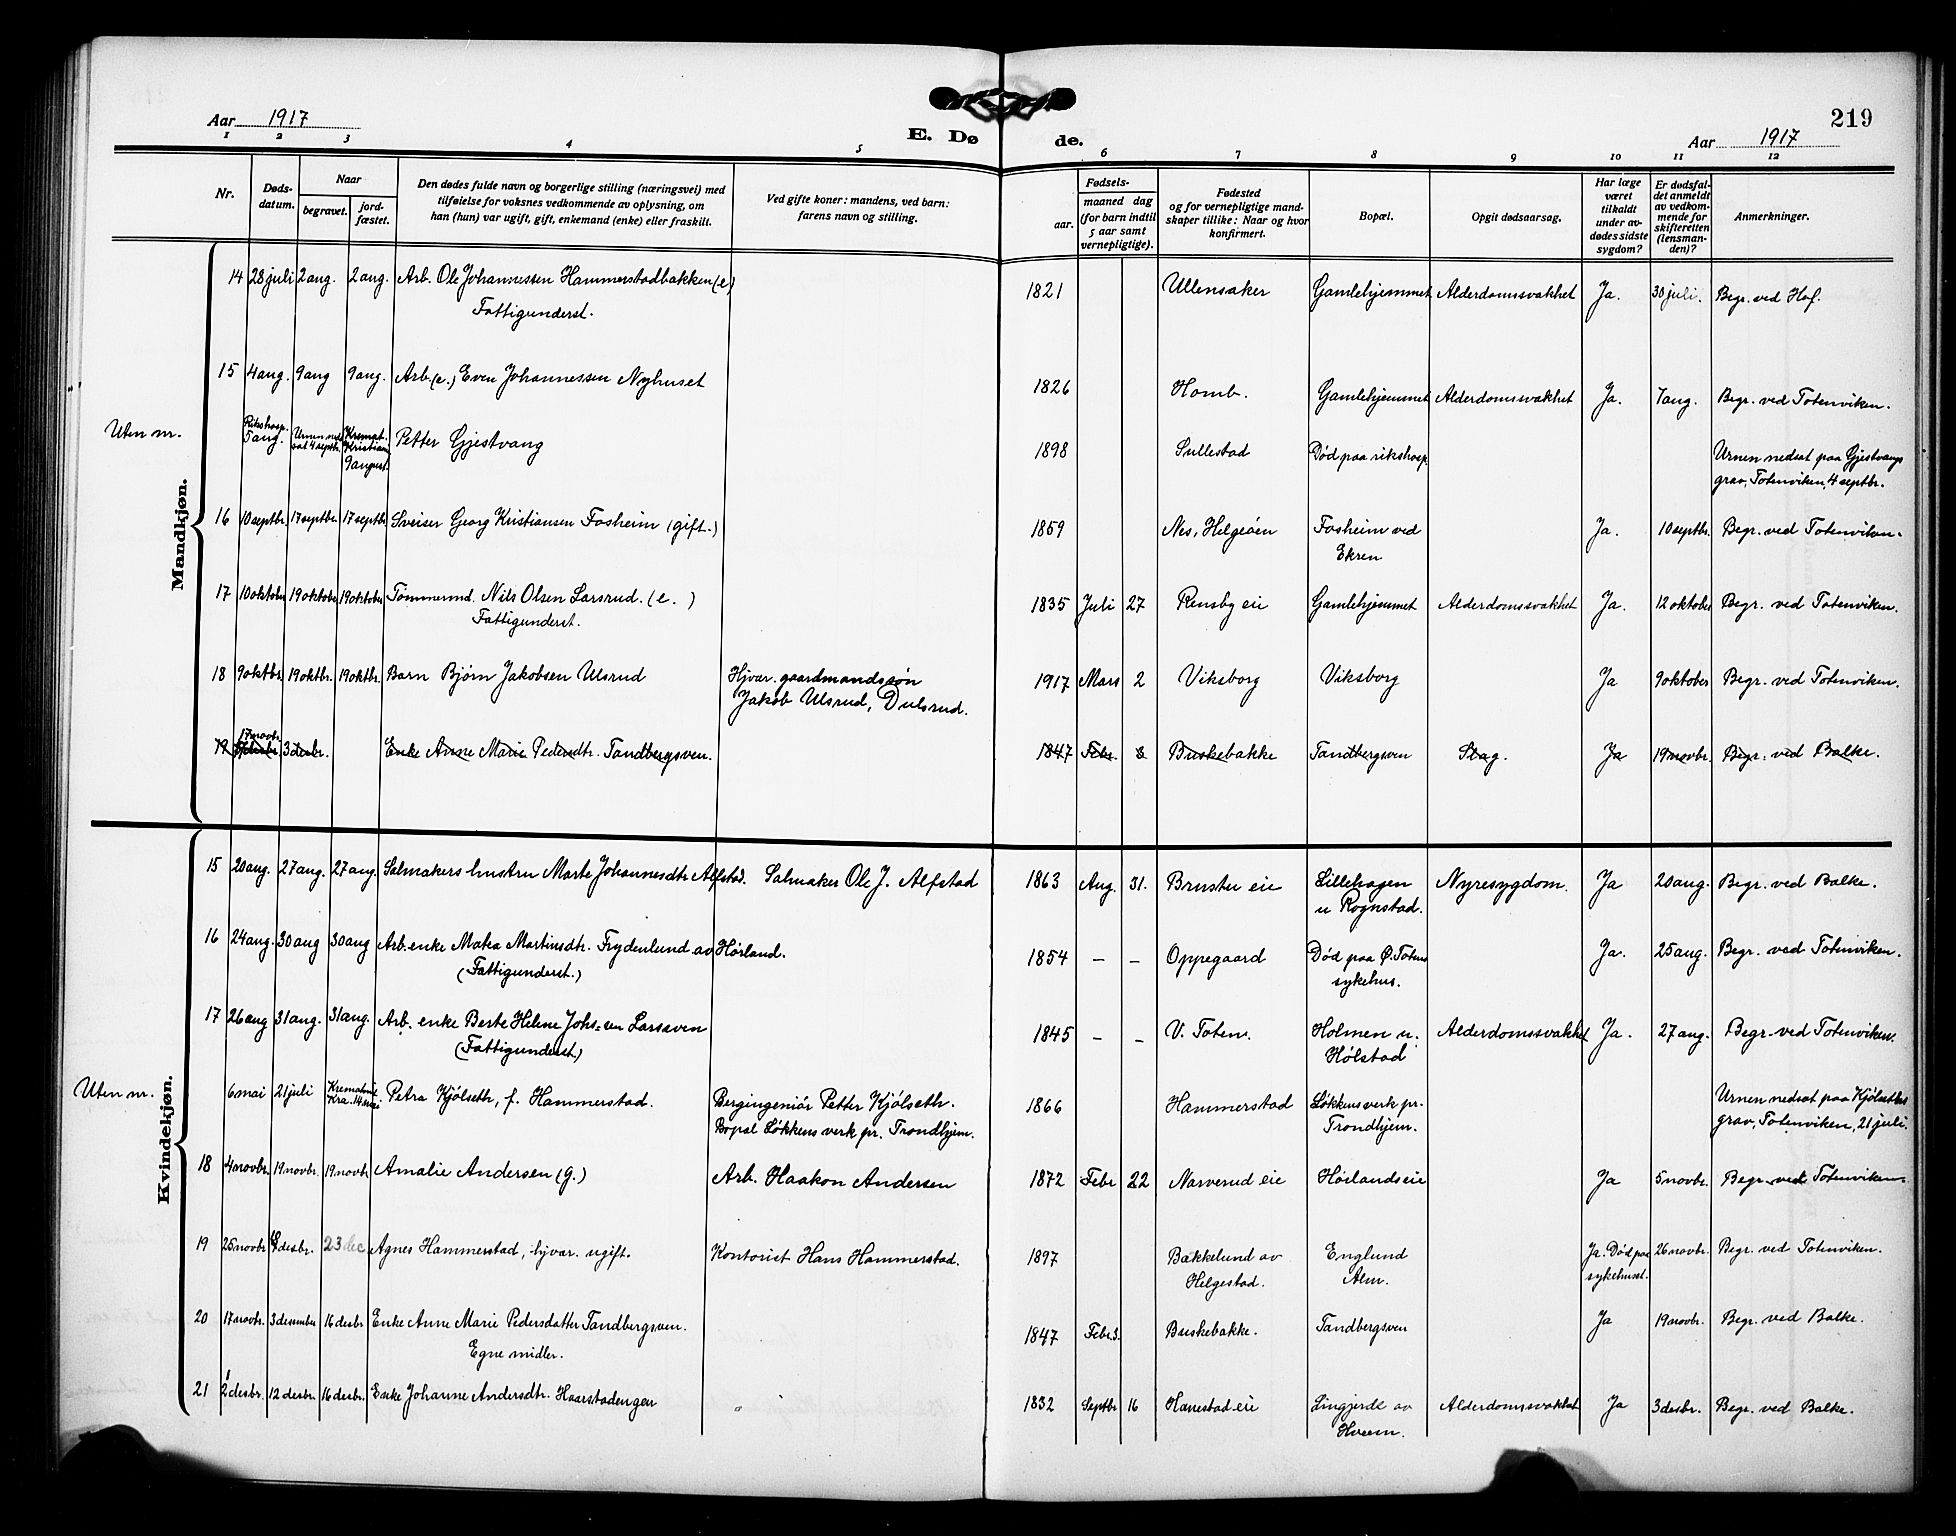 219
Aar 1917
E. Døde.
Aar 1917
1 2 3 4 5 6 7 8 9 10 11 12
Nr.
Døds-
datum.
Naar
begravet.
jord-
fæstet.
Den dødes fulde navn og borgerlige stilling (næringsvei) med
tilføielse for voksnes vedkommende av oplysning, om
han (hun) var ugift, gift, enkemand (enke) eller fraskilt.
Ved gifte koner: mandens, ved barn:
farens navn og stilling.
Fødsels-
aar.
maaned dag
(for barn indtil
5 aar samt
vernepligtige).
Fødested
og for vernepligtige mand-
skaper tillike: Naar og hvor
konfirmert.
Bopæl.
Opgit dødsaarsag.
Har læge
været
tilkaldt
under av-
dødes sidste
sygdom?
Er dødsfal-
det anmeldt
av vedkom-
mende for
skifteretten
(lensman-
den)?
Anmerkninger.
Mandkjøn.
14 28 juli 2 aug. 2 aug. Arb. Ole Johannessen Hammerstadbakken (e) 1821 Ullensaker Gamlehjemmet Alderdomssvakhet Ja. 30 juli. Begr. ved Hof.
Fattigunderst.
15 4 aug. 9 aug 9 aug. Arb. (e.) Even Johannessen Nyhuset 1826 Homb. Gamlehjemmet Alderdomssvakhet Ja. 7 aug. Begr. ved Totenviken.
Uten nr. Rikshosp. 5 aug. Urnen ned sat 4 septbr. Kremat. Kristiania 9 august. Petter Gjestvang 1898 Sullestad Død paa rikshosp. Urnen nedsat paa Gjestvangs
grav, Totenviken, 4 septbr.
16 10 septbr. 17 septbr. 17 septbr Sveiser Georg Kristiansen Fosheim (gift.) 1859 Nes, Helgeøen Fosheim ved
Ekren
Ja. 10 septbr. Begr. ved Totenviken.
17 10 oktober 19 oktober 19 oktober Tømmermd. Nils Olsen Larsrud. (e.) 1835 Juli 27 Rensby eie Gamlehjemmet Alderdomssvakhet Ja. 12 oktober Begr. ved Totenviken.
Fattigunderst.
18 9 oktbr. 19 oktbr. 19 oktbr. Barn Bjørn Jakobsen Ulsrud Hjvær. gaardmandssøn
Jakob Ulsrud, Dulsrud.
1917 Mars 2 Viksborg Viksborg Ja 9 oktober Begr. ved Totenviken.
19 17 novbr. 3 desbr. Enke Anne Marie Pedersdtr. Tandbergsven. 1847 Febr. 3 Buskebakke Tandbergsven Slag. Ja 19 novbr. Begr. ved Balke.
Kvindekjøn.
15 20 aug. 27 aug. 27 aug. Salmakers hustru Marte Johannesdtr Alfstad. Salmaker Ole J. Alfstad 1863 Aug. 31. Brustu eie Lillehagen
u Rognstad.
Nyresygdom. Ja 20 aug. Begr. ved Balke.
16 24 aug. 30 aug 30 aug Arb. enke Matea Martinsdtr. Frydenlund av Hørland. 1854 – – Oppegaard Død paa Ø. Totens
sykehus.
Ja. 25 aug. Begr. ved Totenviken.
(Fattigunderst.)
17 26 aug 31 aug. 31 aug. Arb. enke Berte Helene Johs=en Larssven 1845 – – V. Toten. Holmen u.
Hølstad
Alderdomssvakhet Ja. 27 aug. Begr. ved Totenviken.
(Fattigunderst.)
Uten nr. 6 mai 21 juli Krematus Kra. 14 mai Petra Kjølseth, f. Hammerstad. Bergingeniør Petter Kjølseth.
Bopæl Løkkens verk pr. Trondhjem.
1866 Hammerstad Løkkensverk pr.
Trondhjem.
Urnen nedsat paa Kjølseths
grav, Totenviken, 21 juli.
18 4 novbr. 19 novbr. 19 novbr Amalie Andersen (g.) Arb. Haakon Andersen 1872 Febr 22 Narverud eie Hørlandseie Ja 5 novbr. Begr. ved Totenviken.
19 25 novbr desbr. 23 dec Agnes Hammerstad, hjvær. ugift. Kontorist Hans Hammerstad. 1897 Bakkelund av
Helgestad.
Englund
Alm.
Ja. Død paa
sykehuset.
26 novbr. Begr. ved Totenviken.
20 17 novbr. 3 desember 16 desbr Enke Anne Marie Pedersdatter Tandbergsven. 1847 Febr. 3. Buskebakke. Tandbergsven Ja 19 novbr. Begr. ved Balke.
Egne midler.
21 2 desbr. 12 desbr. 16 desbr. Enke Johanne Andersdtr. Haarstadengen 1832 Septbr 16 Hanestad eie Lingjerde av
Hveem.
Alderdomssvakhet Ja 3 desbr. Begr. ved Balke.